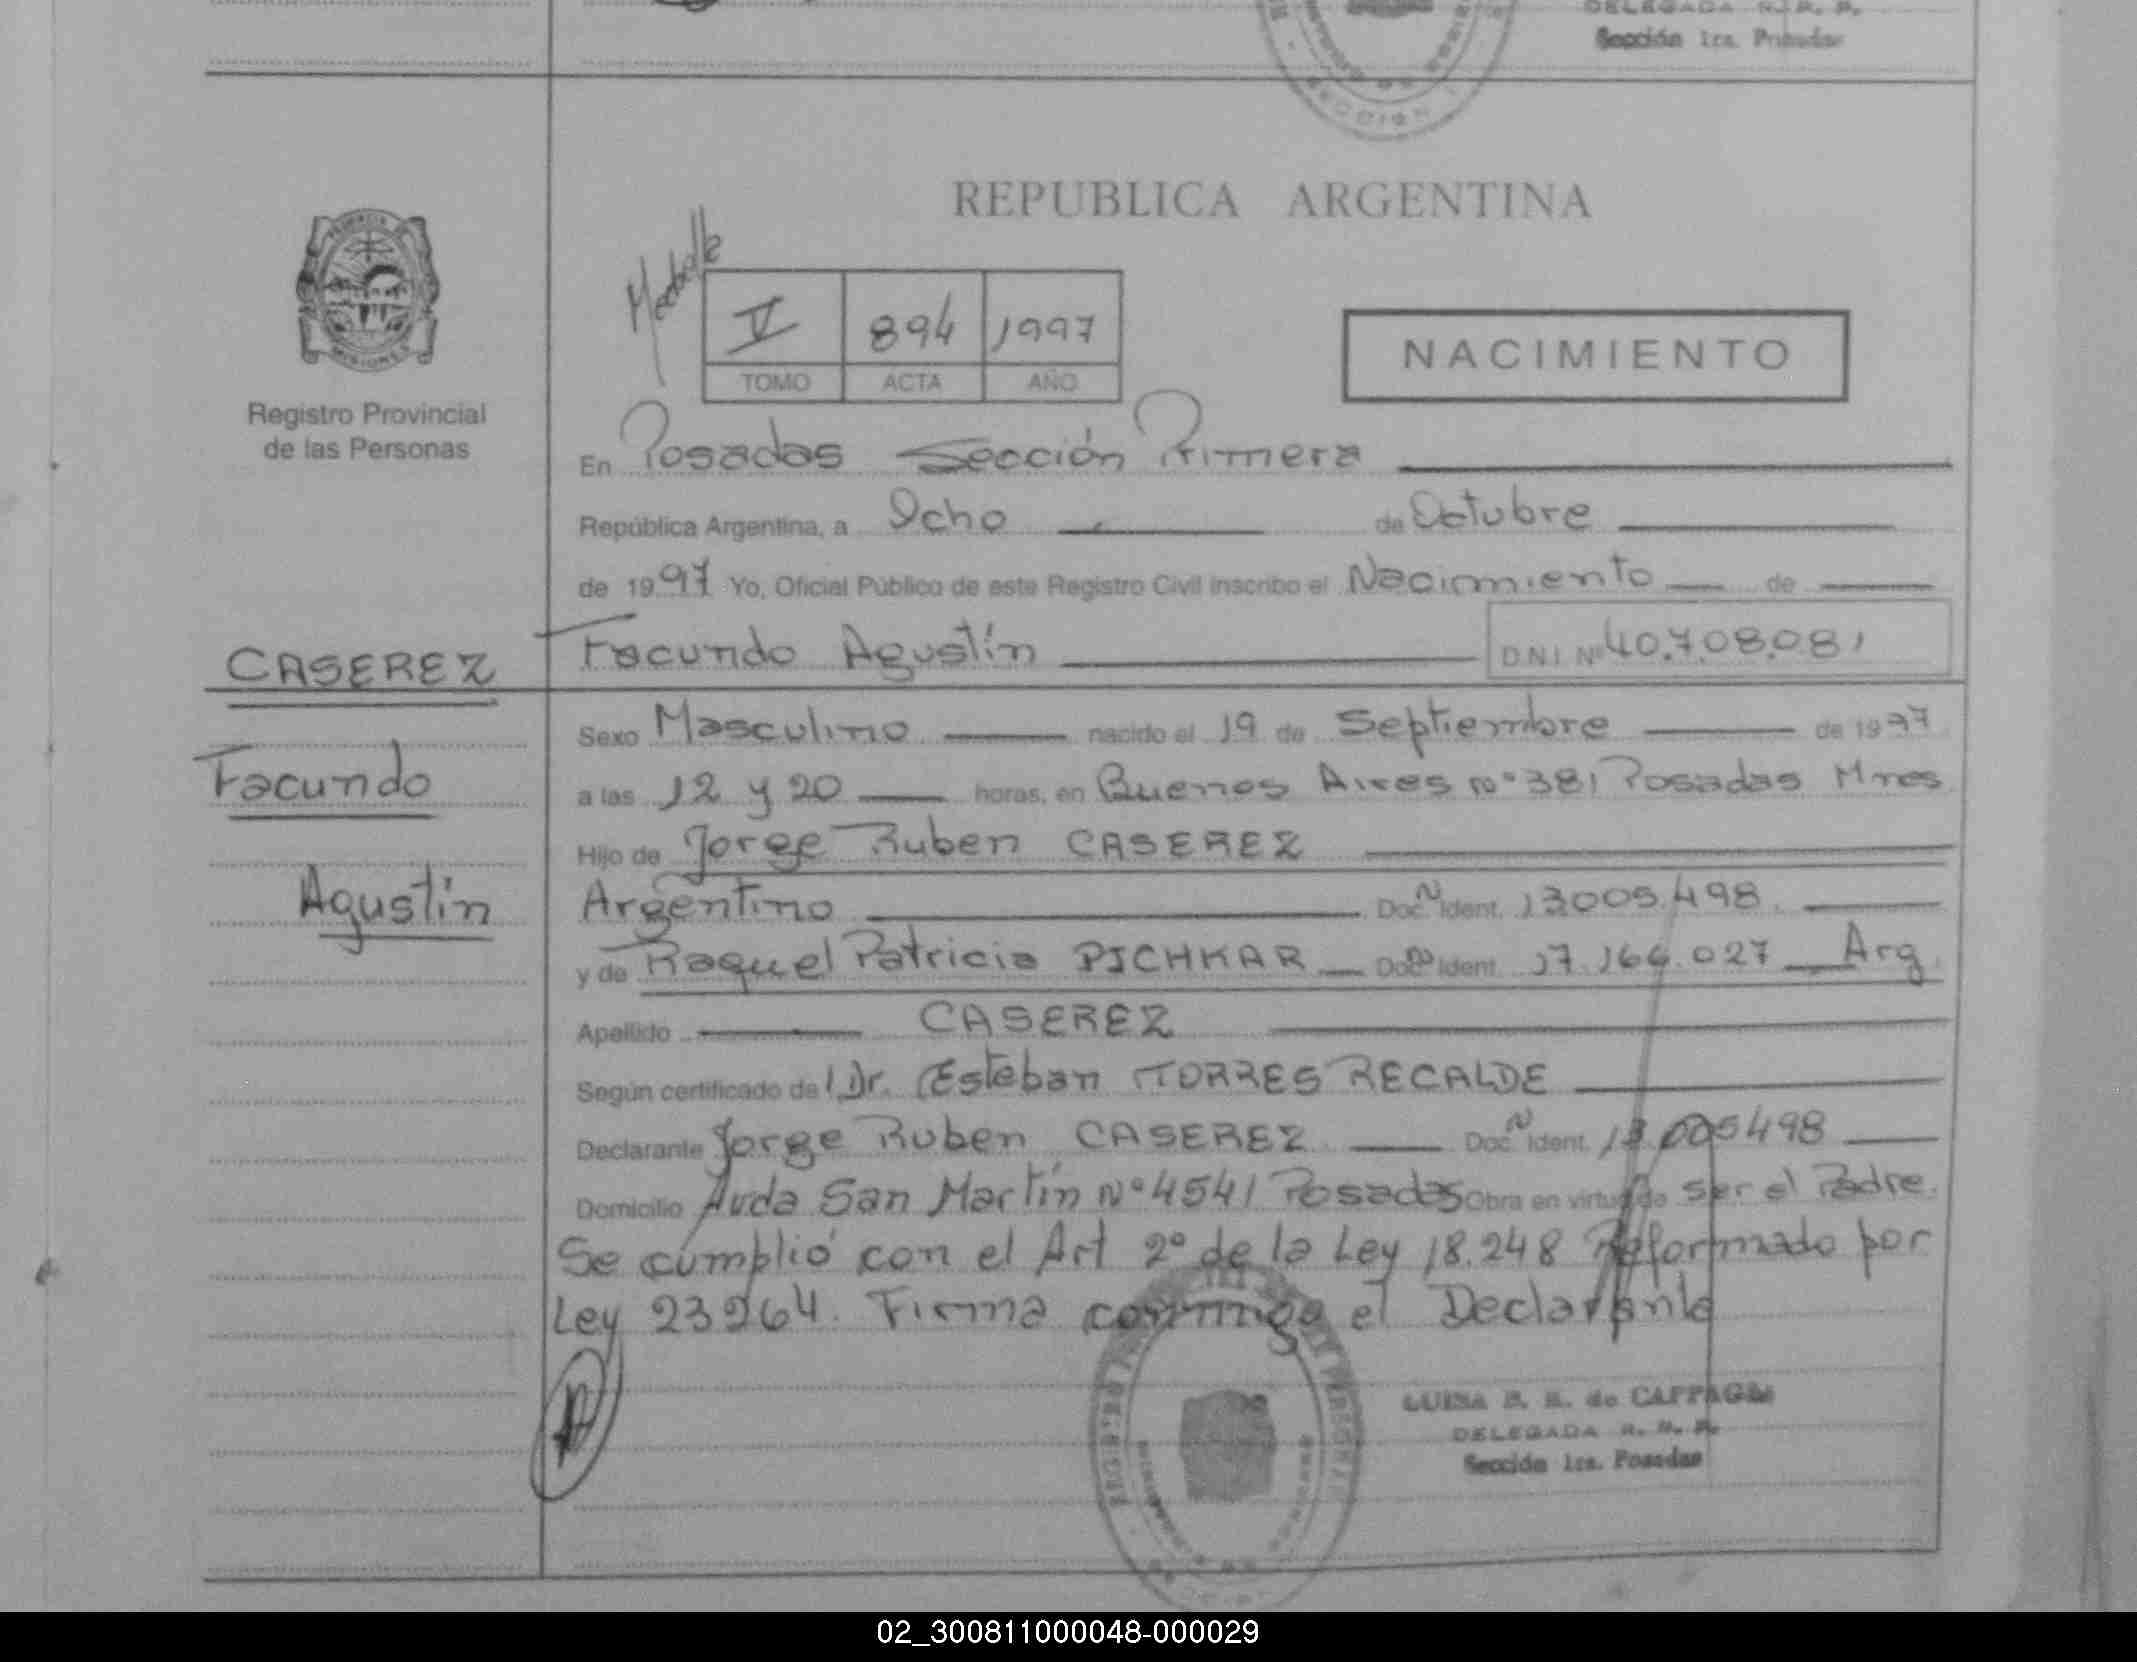 DELEGADA R. P. P.
Sección 1ra. Posadas
SECCION 1
REPUBLICA ARGENTINA
V 894 1997
TOMO ACTA AÑO
NACIMIENTO
MISIONES
Registro Provincial
de las Personas
En Posadas Sección Primera
República Argentina, a Ocho de Octubre
de 1997 Yo, Oficial Público de este Registro Civil inscribo el Nacimiento de
CASEREZ Facundo Agustín D.N.I. Nº 40.708.081
Sexo Masculino nacido el 19 de Septiembre de 1997
Facundo
a las 12 y 20 horas, en Buenos Aires nº 381 Posadas Mnes
Hijo de Jorge Ruben CASEREZ
Agustín
Argentino Doc. Nº Ident. 13.005.498.
y de Raquel Patricia PICHKAR Doc. Nº Ident. 17.164.027 Arg.
Apellido CASEREZ
Según certificado de l Dr. Esteban TORRES RECALDE
Declarante Jorge Ruben CASEREZ Doc. Nº Ident. 13.005498
Domicilio Avda San Martín Nº 4541 Posadas Obra en virtud de ser el Padre.
Se cumplió con el Art 2º de la Ley 18.248 Reformado por
Ley 23264. Firma conmigo el Declarante
LUISA de CAPPAGLI
DELEGADA R. P. P.
Sección 1ra. Posadas
02_300811000048-000029